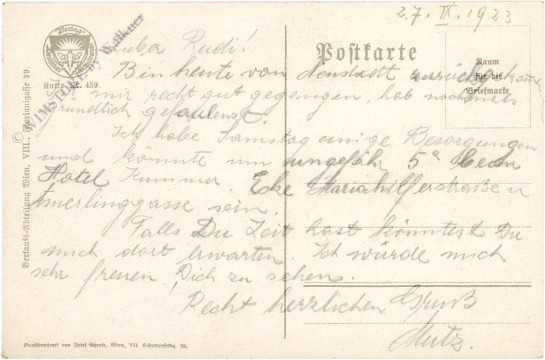 27. IX. 1923
Lieber Rudi!
Postkarte
Bin heute von Neustadt zurückgekommen
Raum
für die
Briefmarke
Karte Nr. 459.
mir recht gut gegangen, hab nochmals
gründlich gefaulenzt.
Ich habe Samstag einige Besorgungen
und könnte um ungefähr 5h beim
Hotel Kummer Ecke Mariahilferstraße u
Amerlinggasse sein.
Falls Du Zeit hast könntest Du
mich dort erwarten. Ich würde mich
sehr freuen, Dich zu sehen.
Recht herzlichen Gruß
Mutz.
Verkaufs-Abteilung Wien, VIII, Florianigasse 39.
Kunstdruckerei von Josef Eberle, Wien, VII. Schottenfeldg. 38.
© WIMSTORE by Walkner